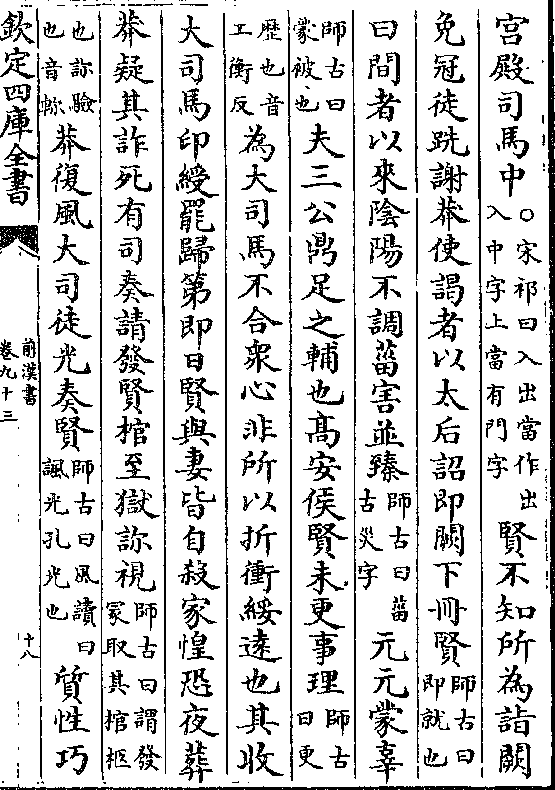 宮殿司馬中○宋祁曰入出當作出入中字上當有門字賢不知所為詣闕
免冠徒跣謝莽使謁者以太后詔即闕下冊賢師古曰即就也
曰間者以來陰陽不調菑害並臻師古曰菑古災字元元蒙辜
師古曰蒙被也夫三公鼎足之輔也髙安侯賢未更事理師古曰更
歷也音工衡反為大司馬不合衆心非所以折衝綏逺也其收
大司馬印綬罷歸第即日賢與妻皆自殺家惶恐夜葬
莽疑其詐死有司奏請發賢棺至獄診視師古曰謂發冡取其棺柩
也診驗也音軫莽復風大司徒光奏賢師古曰風讀曰諷光孔光也質性巧
欽定四庫全書
前漢書
卷九十三
十八